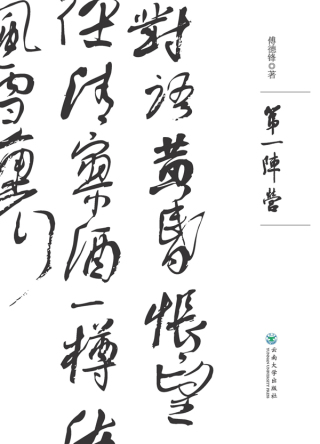 傅德锋◎著
第一陣營
對語黃昏悵望
清寒酒一樽
風雪
云南大学出版社
YUNNAN UNIVERSITY PRESS